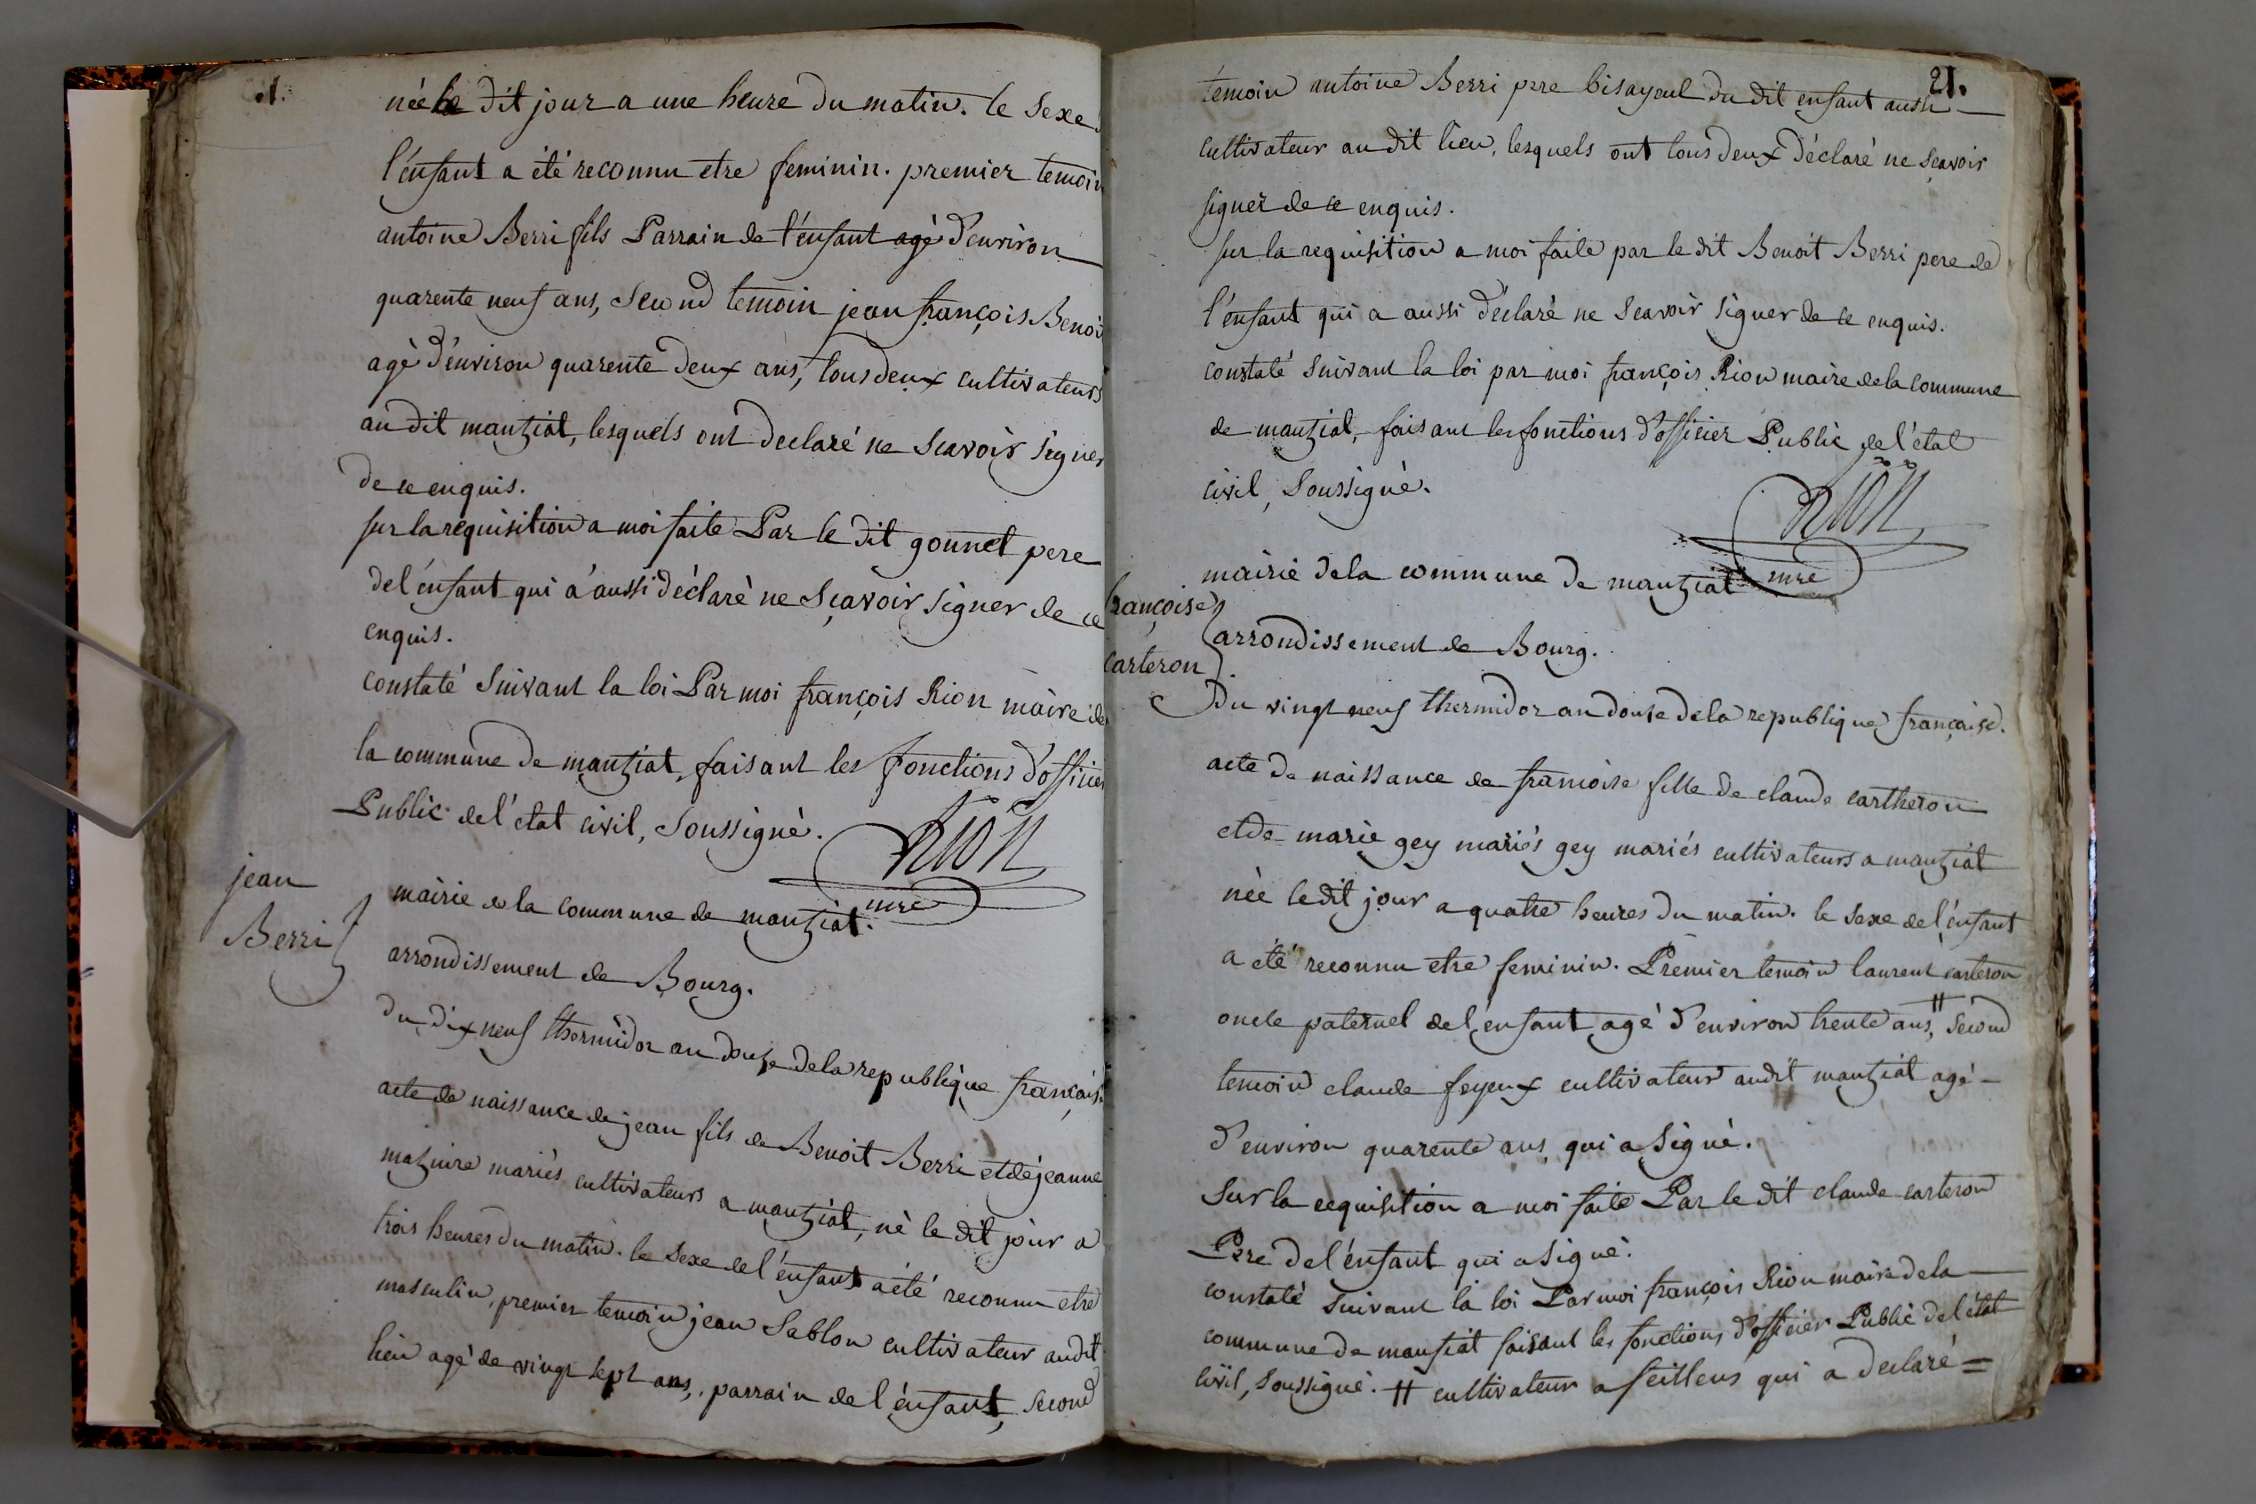 née le dit jour a une heure du matin. le sexe
l'énfant a été reconnu etre feminin. premier temoin
antoine Berri fils Parrain de l'énfant agè d'environ
quarente neuf ans, second temoin jean françois Benoi
agè d'énviron quarente deux ans, tous deux cultivateurs
au dit mantziat, lesquels ont declaré ne scavoir signer
de ce enquis.
sur la requisition a moi faite Par le dit gonnet pere
de l'énfant qui a aussi déclarè ne sçavoir signer de ce
enquis.
constaté suivant la loi Par moi françois Rion màire de
la commune de mantziat, faisant les fonctions d'officier
Public de l'état civil, soussignè.
Rion
mre
jean
Berri
màirie de la commune de mantziat.
arrondissement de Bourg.
du dix neuf thermidor an douze de la republique français.
acte de naissance de jean fils de Benoit Berri et de jeanne
mazuire mariès cultivateurs a mantziat, nè le dit jour a
trois heures du matin. le sexe de l'énfant a été reconnu etre
masculin, premier temoin jean Sablon cultivateur au dit
lieu agè de vingt sept ans, parrain de l'énfant, second
21.
témoin antoine Berri pere bisayeul du dit enfant aussi
cultivateur au dit lieu, lesquels ont tous deux déclaré ne sçavoir
signer de ce enquis.
sur la requisition a moi faite par le dit Benoit Berri pere de
l'énfant qui a aussi déclarè ne scavoir signer de ce enquis.
constaté suivant la loi par moi françois Rion maire de la commune
de mantziat, faisant les fonctions d'officier Public de l'état
civil, soussignè.
Rion
mre
françoise
carteron
màirie de la commune de mantziat
arrondissement de Bourg.
Du vingt neuf thermidor an douze de la republique française.
acte de naissance de francoise fille de claude cartheron
et de marie gey mariés gey mariés cultivateurs a mantziat
née le dit jour a quatre heures du matin. le sexe de l'énfant
a été reconnu etre feminin. Premier temoin laurent carteron
oncle paternel de l'énfant agè d'environ trente ans, # second
temoin claude feyeux cultivateur au dit mantziat agé
d'environ quarente ans qui a signé.
Sur la requisition a moi faite Par le dit claude carteron
Pere de l'énfant qui a signé.
constaté suivant la loi Par moi françois Rion maire de la
commune de mantziat faisant les fonctions d'officier Public de l'état
civil, soussigné. # cultivateur a feillens qui a declaré =